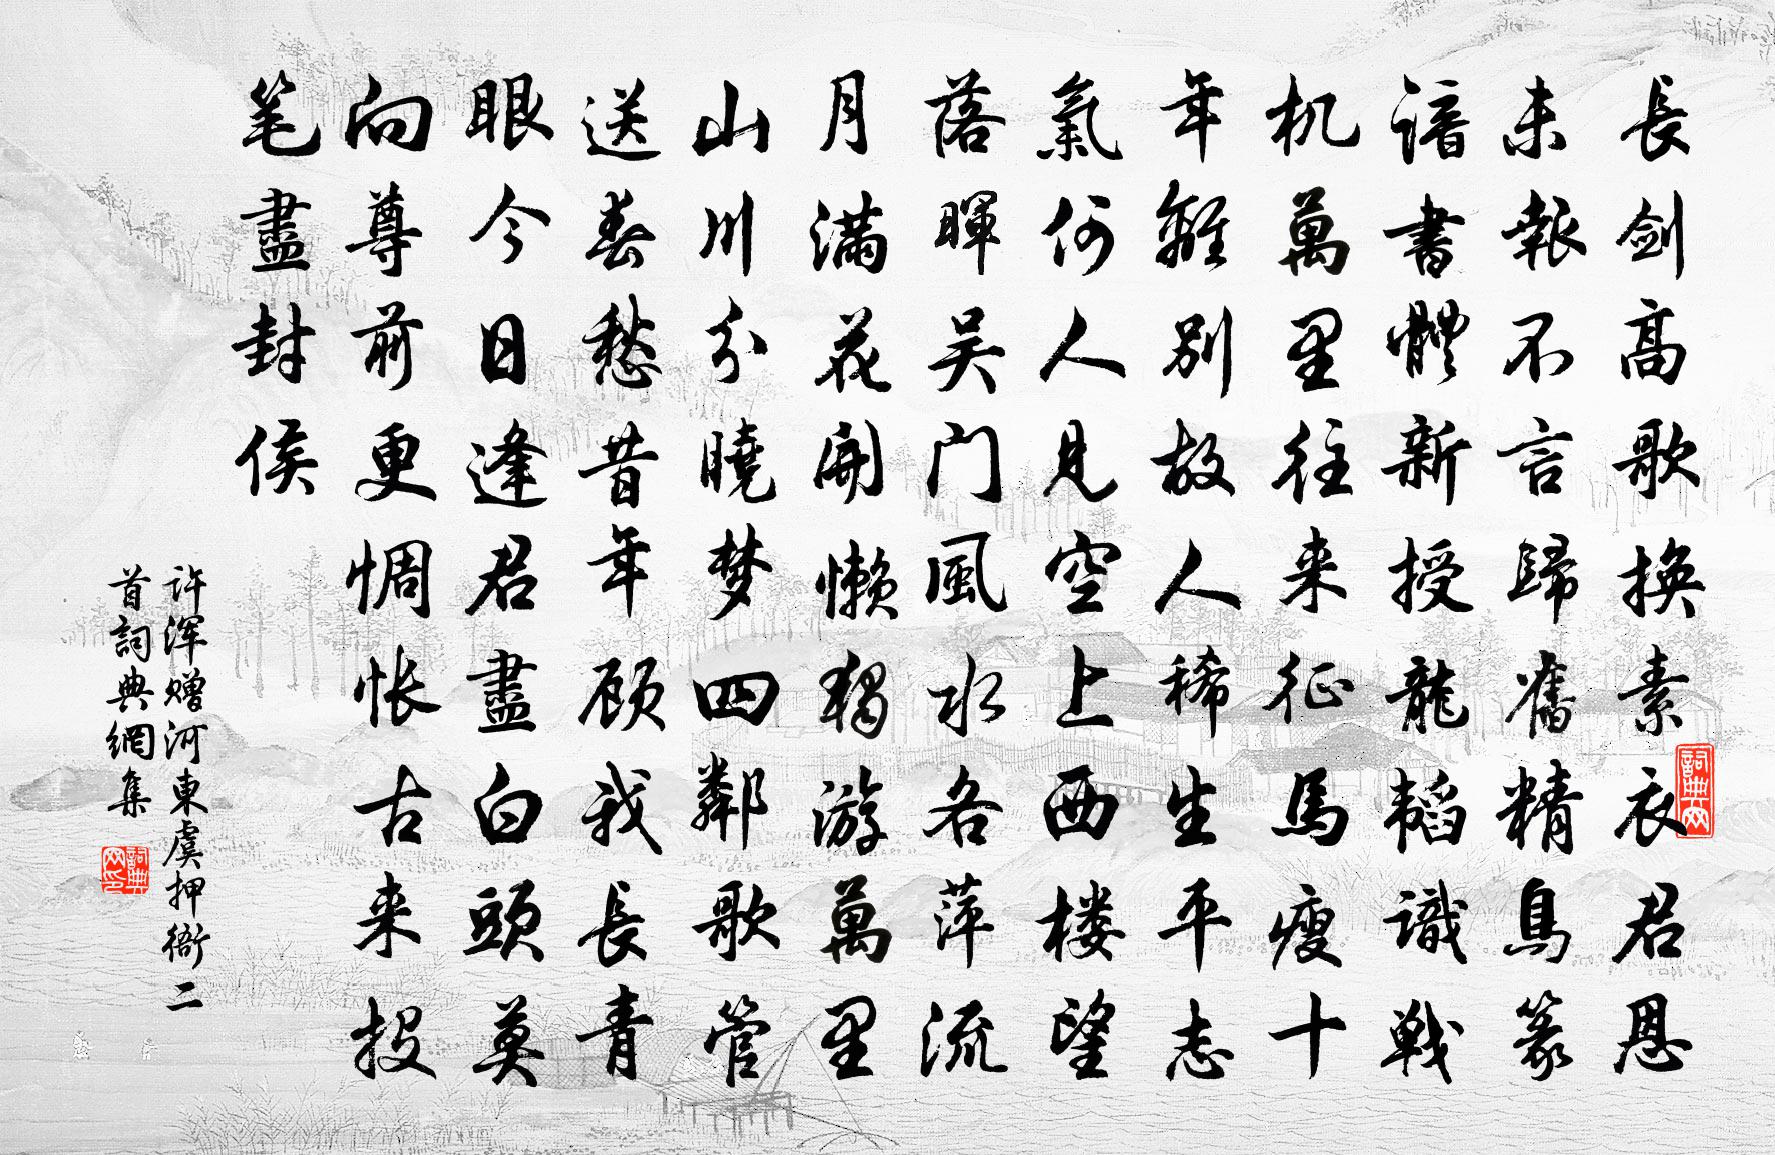 長剑高歌換素衣君恩
未報不言歸舊精鳥篆
谙書體新授龍韬識戦
机萬里往来征馬瘦十
年離别故人稀生平志
氣何人見空上西楼望
落暉吴门風水各萍流
月满花開懒獨游萬里
山川分曉梦四鄰歌管
送春愁昔年顾我長青
眼今日逢君盡白頭莫
向尊前更惆怅古来投
笔盡封侯
许浑赠河東虞押衙二
首詞典網集
詞典网
詞典网印